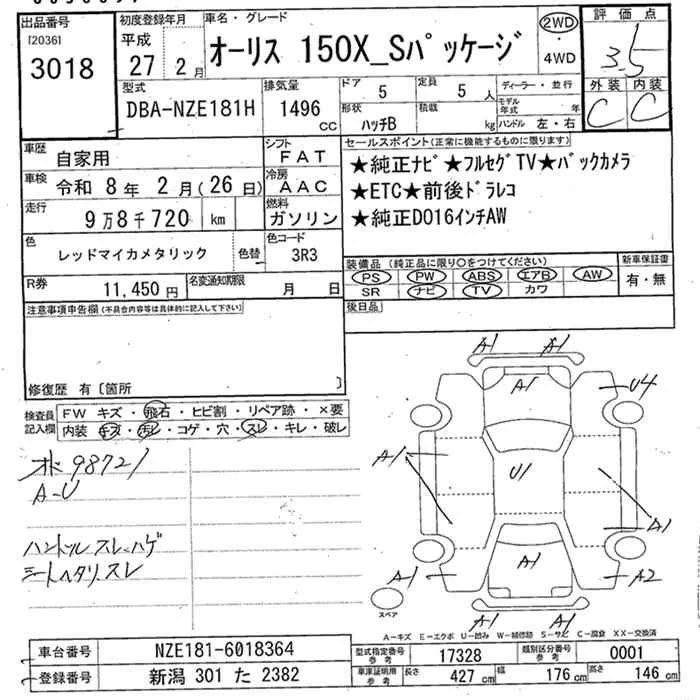 出品番号
[2036]
3018
初度登録年月
平成
27年 2月
車名・グレード
オーリス 150X_Sパッケージ
2WD
・
4WD
評価点
3.5
外装 内装
C C
型式
DBA-NZE181H
排気量
1496
CC
ドア
5
定員
5 人
形状
ハッチB
積載
kg
ディーラー・並行
モデル年式 年
ハンドル 左・右
車歴
自家用
シフト
FAT
車検
令和 8年 2月(26日)
冷房
AAC
走行
9万8千720 km
燃料
ガソリン
色
レッドマイカメタリック
色替
色コード
3R3
セールスポイント(正常に機能するものに限ります)
★純正ナビ★フルセグTV★バックカメラ
★ETC★前後ドラレコ
★純正DO16インチAW
R券
11,450円
名変通知期限
月 日
装備品(純正品に限り○をつけてください)
PS PW ABS エアB AW
SR ナビ TV カワ
新車保証書
有・無
注意事項申告欄(不具合内容等は具体的に記入して下さい)
後日品
修復歴 有〔箇所 〕
検査員
記入欄
FW キズ・飛石・ヒビ割・リペア跡・×要
内装 キズ・汚レ・コゲ・穴・スレ・キレ・破レ
98721
A-U
ハンドル スレ、ハゲ
シートヘタリ、スレ
A1 A1
A1
U4
A1
U1
A1
A1
A1
A2
A1 A1
スペア
A-キズ E-エクボ U-凹み W-補修跡 S-サビ C-腐食 XX-交換済
車台番号
NZE181-6018364
型式指定番号
参考
17328
類別区分番号
参考
0001
登録番号
新潟 301 た 2382
車庫証明用
参考
長さ
427 cm
幅
176 cm
高さ
146 cm